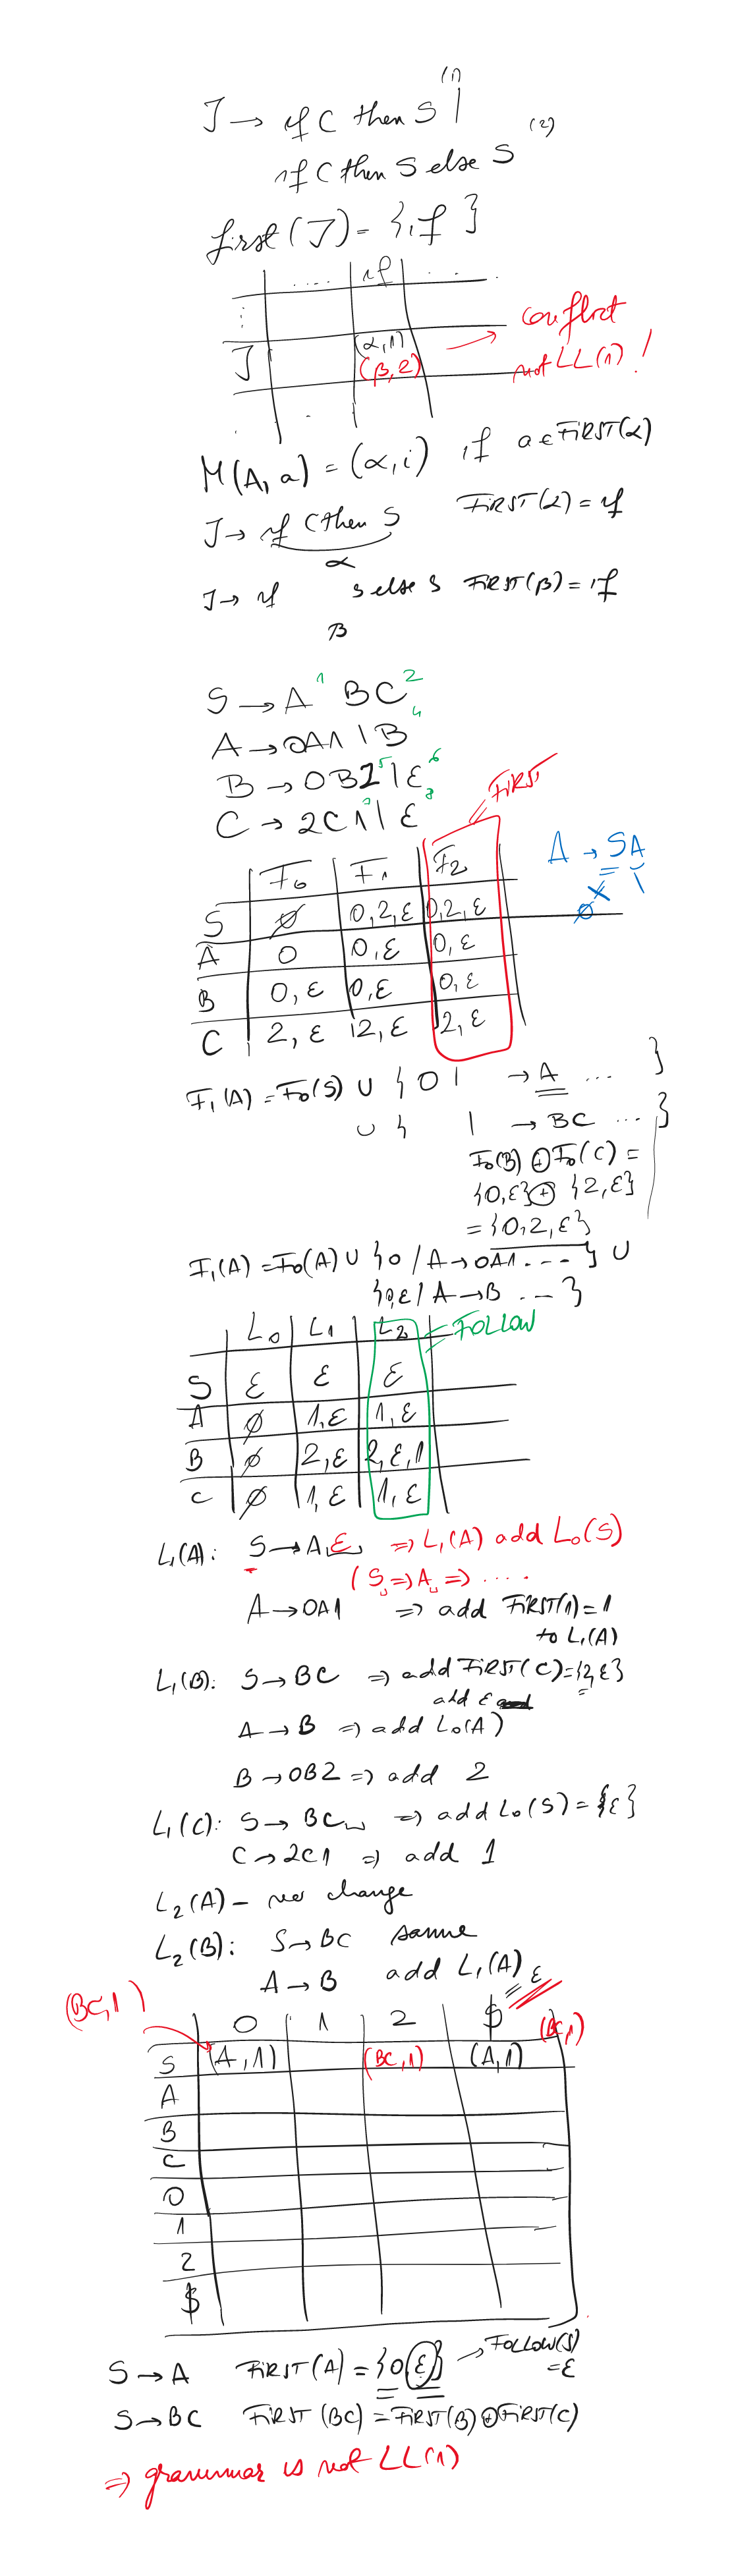 (1)
J → if C then S |
(2)
if C then S else S
first(J) = {if}
.... if . . .
:
J (α,1) → conflict
(β,2) not LL(1)!
M(A, a) = (α, i) if a ∈ FIRST(α)
J → if C then S FIRST(α) = if
α
J → if S else S FIRST(β) = if
β
S → A ¹ BC ²
A → 0A1 | B ⁴
B → 0B2 ⁵ | ε ⁶
C → 2C1 | ε ⁸
FIRST
F0 F1 F2 A → SA
S ∅ 0,2,ε 0,2,ε ∅
A 0 0,ε 0,ε
B 0,ε 0,ε 0,ε
C 2,ε 2,ε 2,ε
F1(A) = F0(S) ∪ {0 | → A ... }
∪ { | → BC ... }
F0(B) ⊕ F0(C) =
{0,ε} ⊕ {2,ε}
= {0,2,ε}
F1(A) = F0(A) ∪ {0 / A → 0A1 . - - - } ∪
{0,ε / A → B . - - }
L0 L1 L2 FOLLOW
S ε ε ε
A ∅ 1,ε 1,ε
B ∅ 2,ε 2,ε,1
C ∅ 1,ε 1,ε
L1(A): S → A ε ⇒ L1(A) add L0(S)
(S ⇒ A ⇒ ....
A → 0A1 ⇒ add FIRST(1) = 1
to L1(A)
L1(B): S → BC ⇒ add FIRST(C) = {2,ε}
add ε
A → B ⇒ add L0(A)
B → 0B2 ⇒ add 2
L1(C): S → BC ⇒ add L0(S) = {ε}
C → 2C1 ⇒ add 1
L2(A) – no change
L2(B): S → BC same
A → B add L1(A)
ε
(BC,1)
0 1 2 $ (BC,1)
S (A,1) (BC,1) (A,1)
A
B
C
0
1
2
$
S → A FIRST(A) = {0,ε} → FOLLOW(S)
= ε
S → BC FIRST(BC) = FIRST(B) ⊕ FIRST(C)
⇒ grammar is not LL(1)